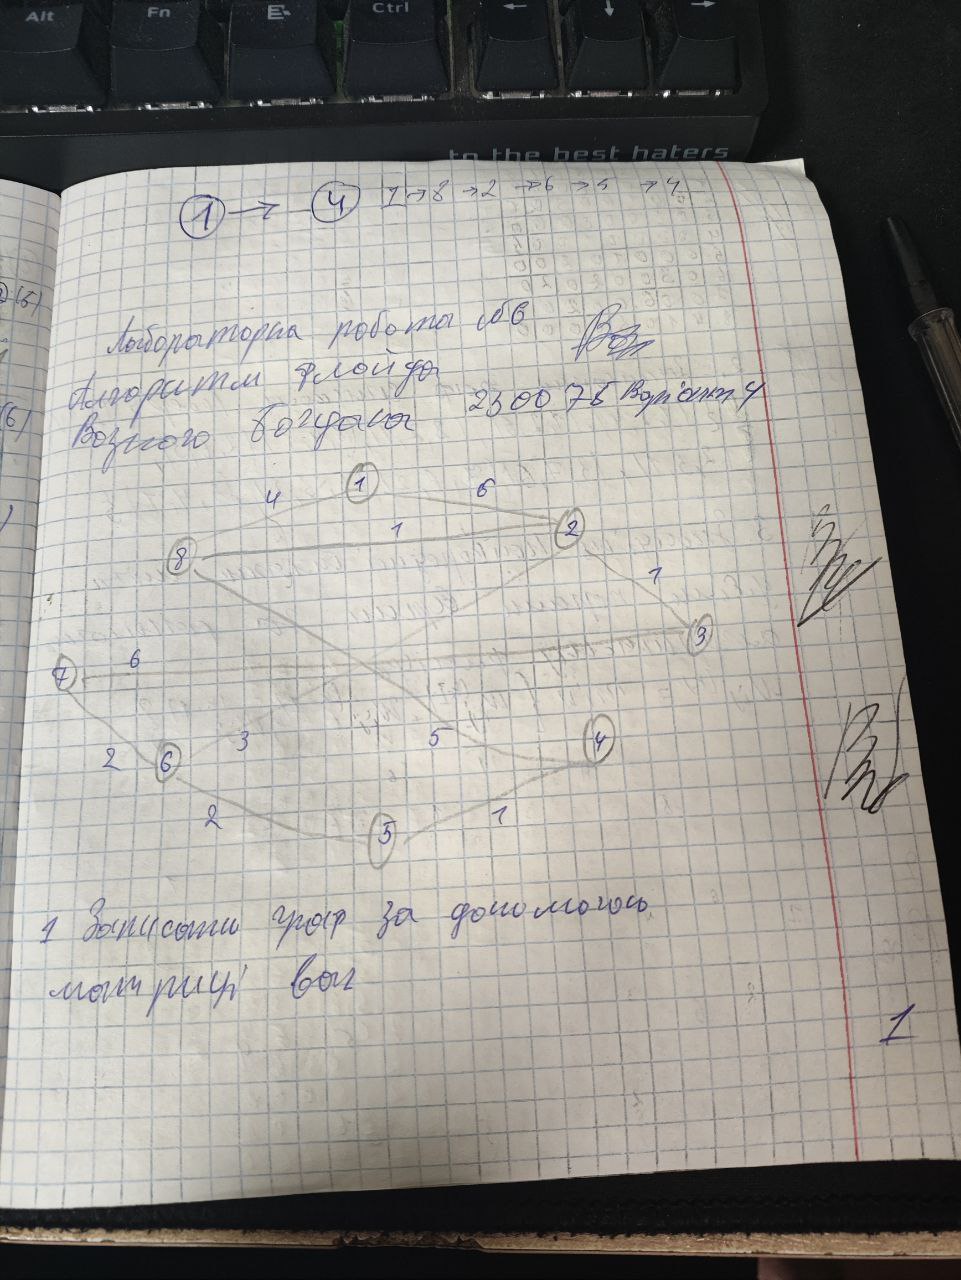 Alt Fn Ctrl ← ↓ →
to the best haters
1 → 4 1 → 8 → 2 → 6 → 5 → 4
Лабораторна робота №6
Алгоритм Флойда
Возного Богдана 230076 Варіант 4
4 1 6
8 1 2
1
3
7 6
2 6 3 5 4
2 5 1
1 Записати граф за допомогою
матриці ваг
1